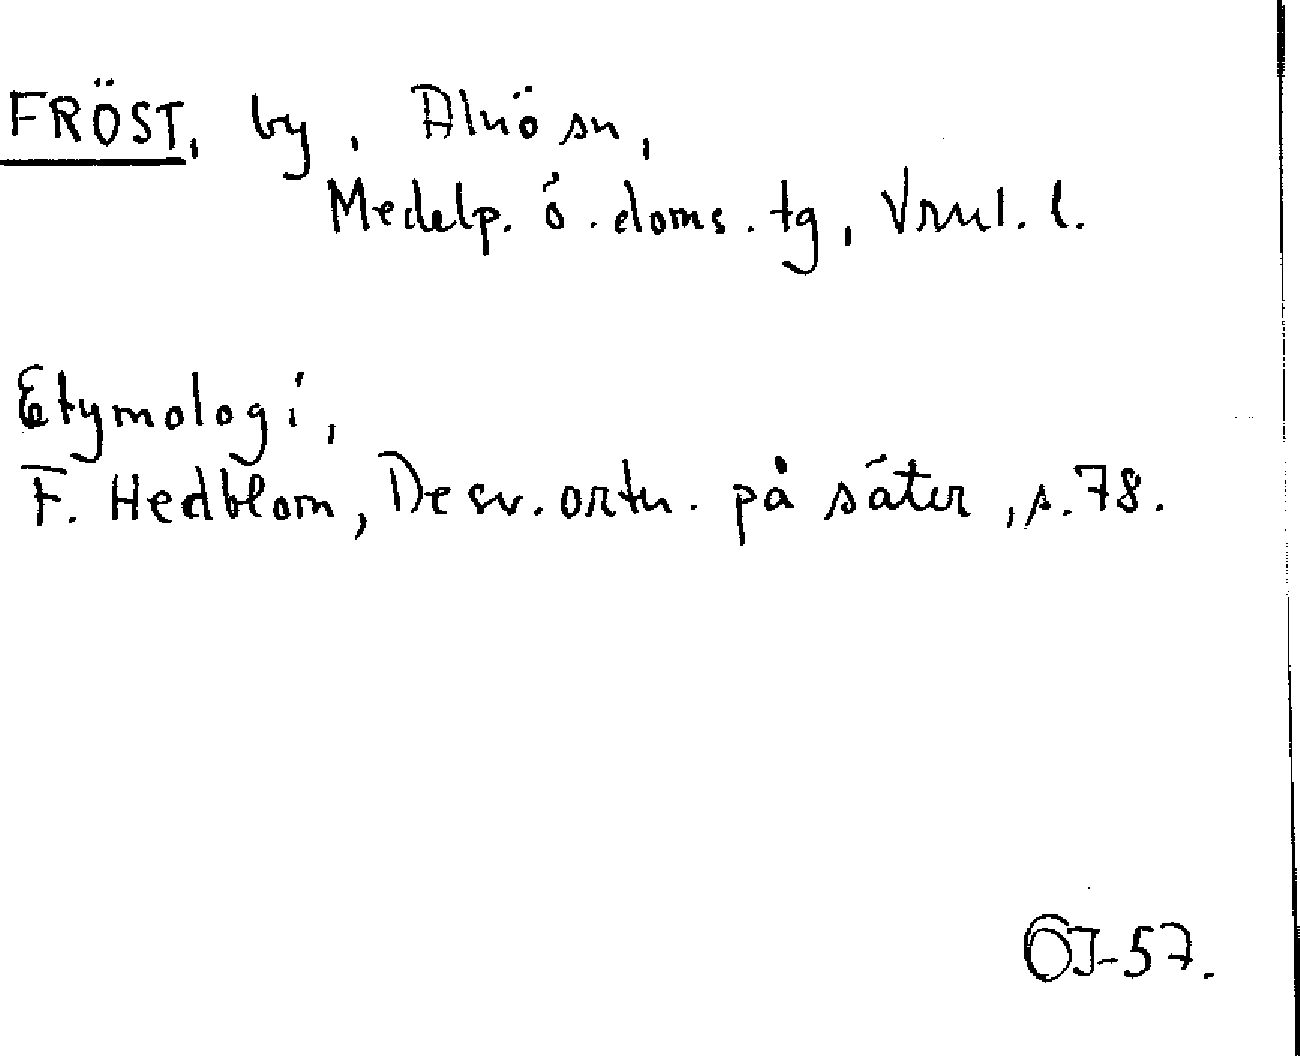 FRÖST, by, Alnö sn,
Medelp. ö. doms. tg, Vrnl. l.
Etymologi,
F. Hedblom, De sv. ortn. på säter, s. 78.
OJ-57.